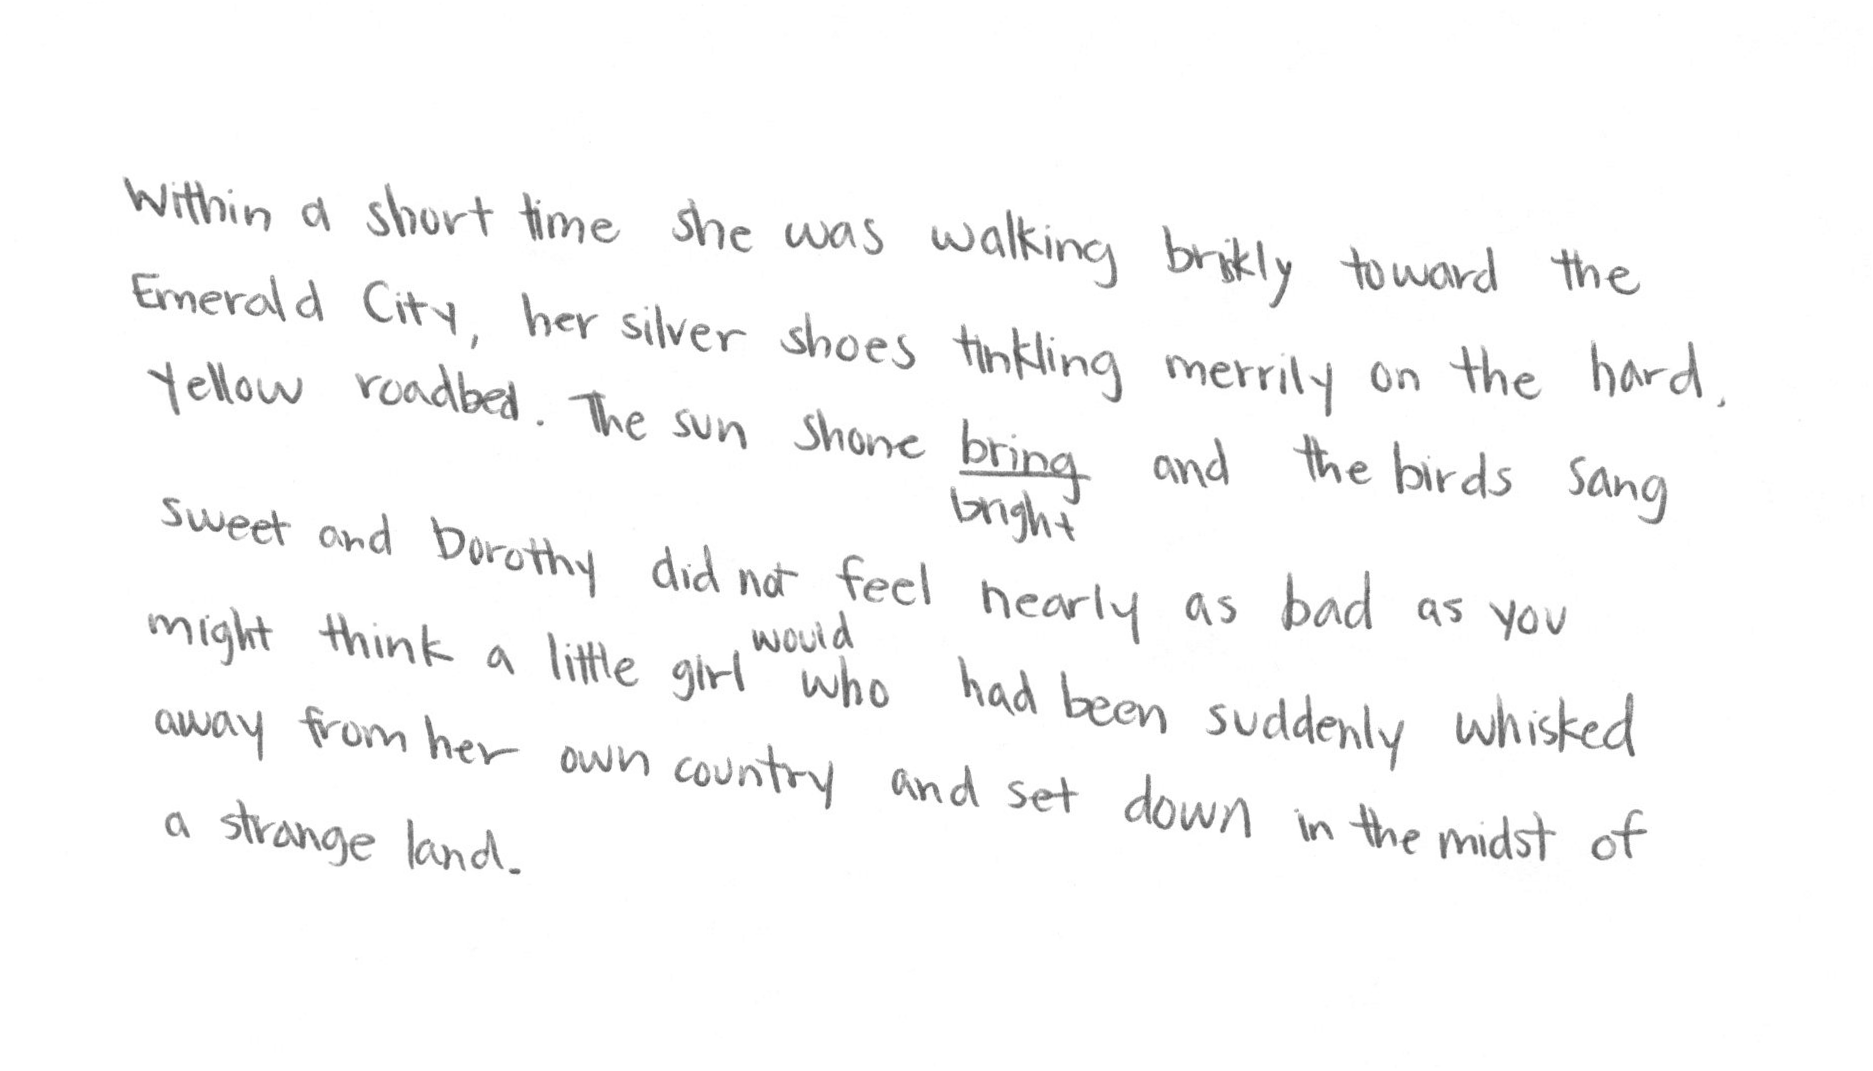 Within a short time she was walking briskly toward the
Emerald City, her silver shoes tinkling merrily on the hard,
yellow roadbed. The sun shone bring and the birds sang
bright
sweet and Dorothy did not feel nearly as bad as you
would
might think a little girl who had been suddenly whisked
away from her own country and set down in the midst of
a strange land.